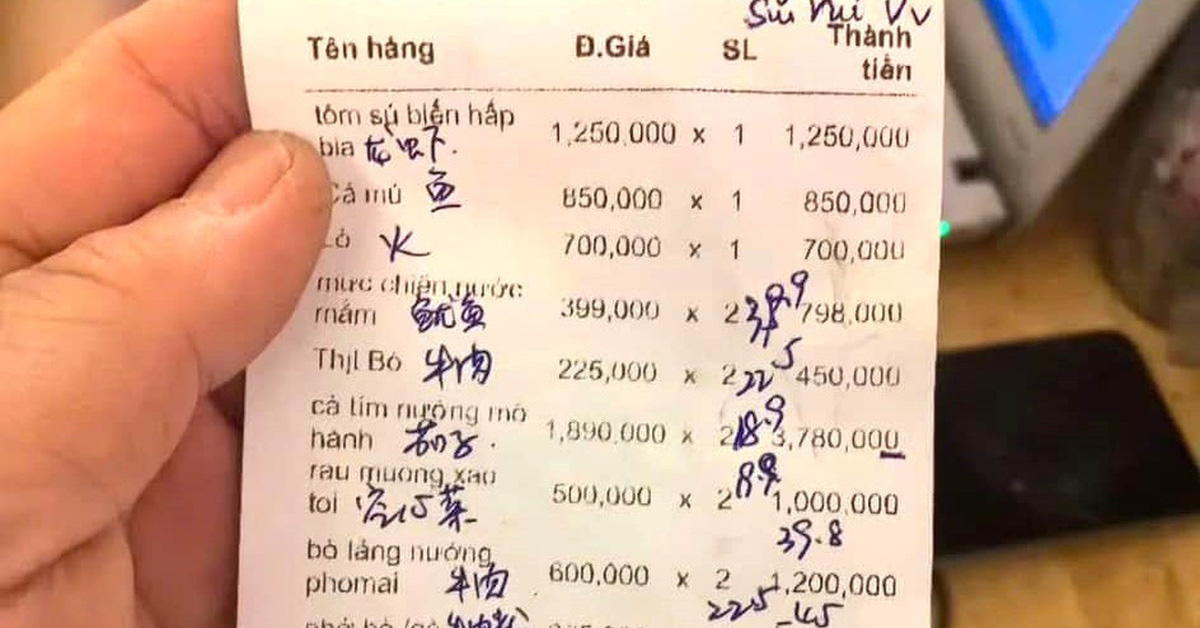 Tên hàng Đ.Giá SL Thành
tiền
tôm sú biển hấp
bia 花虾. 1,250,000 x 1 1,250,000
Cá mú 鱼 850,000 x 1 850,000
Lò 火 700,000 x 1 700,000
mực chiên nước
mắm 鱿鱼 399,000 x 2 39.9 798,000
Thịt Bò 牛肉 225,000 x 2 22.5 450,000
cà tím nướng mỡ
hành 茄子. 1,890,000 x 2 18.9 3,780,000
rau muong xao
toi 空心菜 500,000 x 2 8.9 1,000,000
39.8
bò lảng nướng
phomai 牛肉 600,000 x 2 1,200,000
225 -45